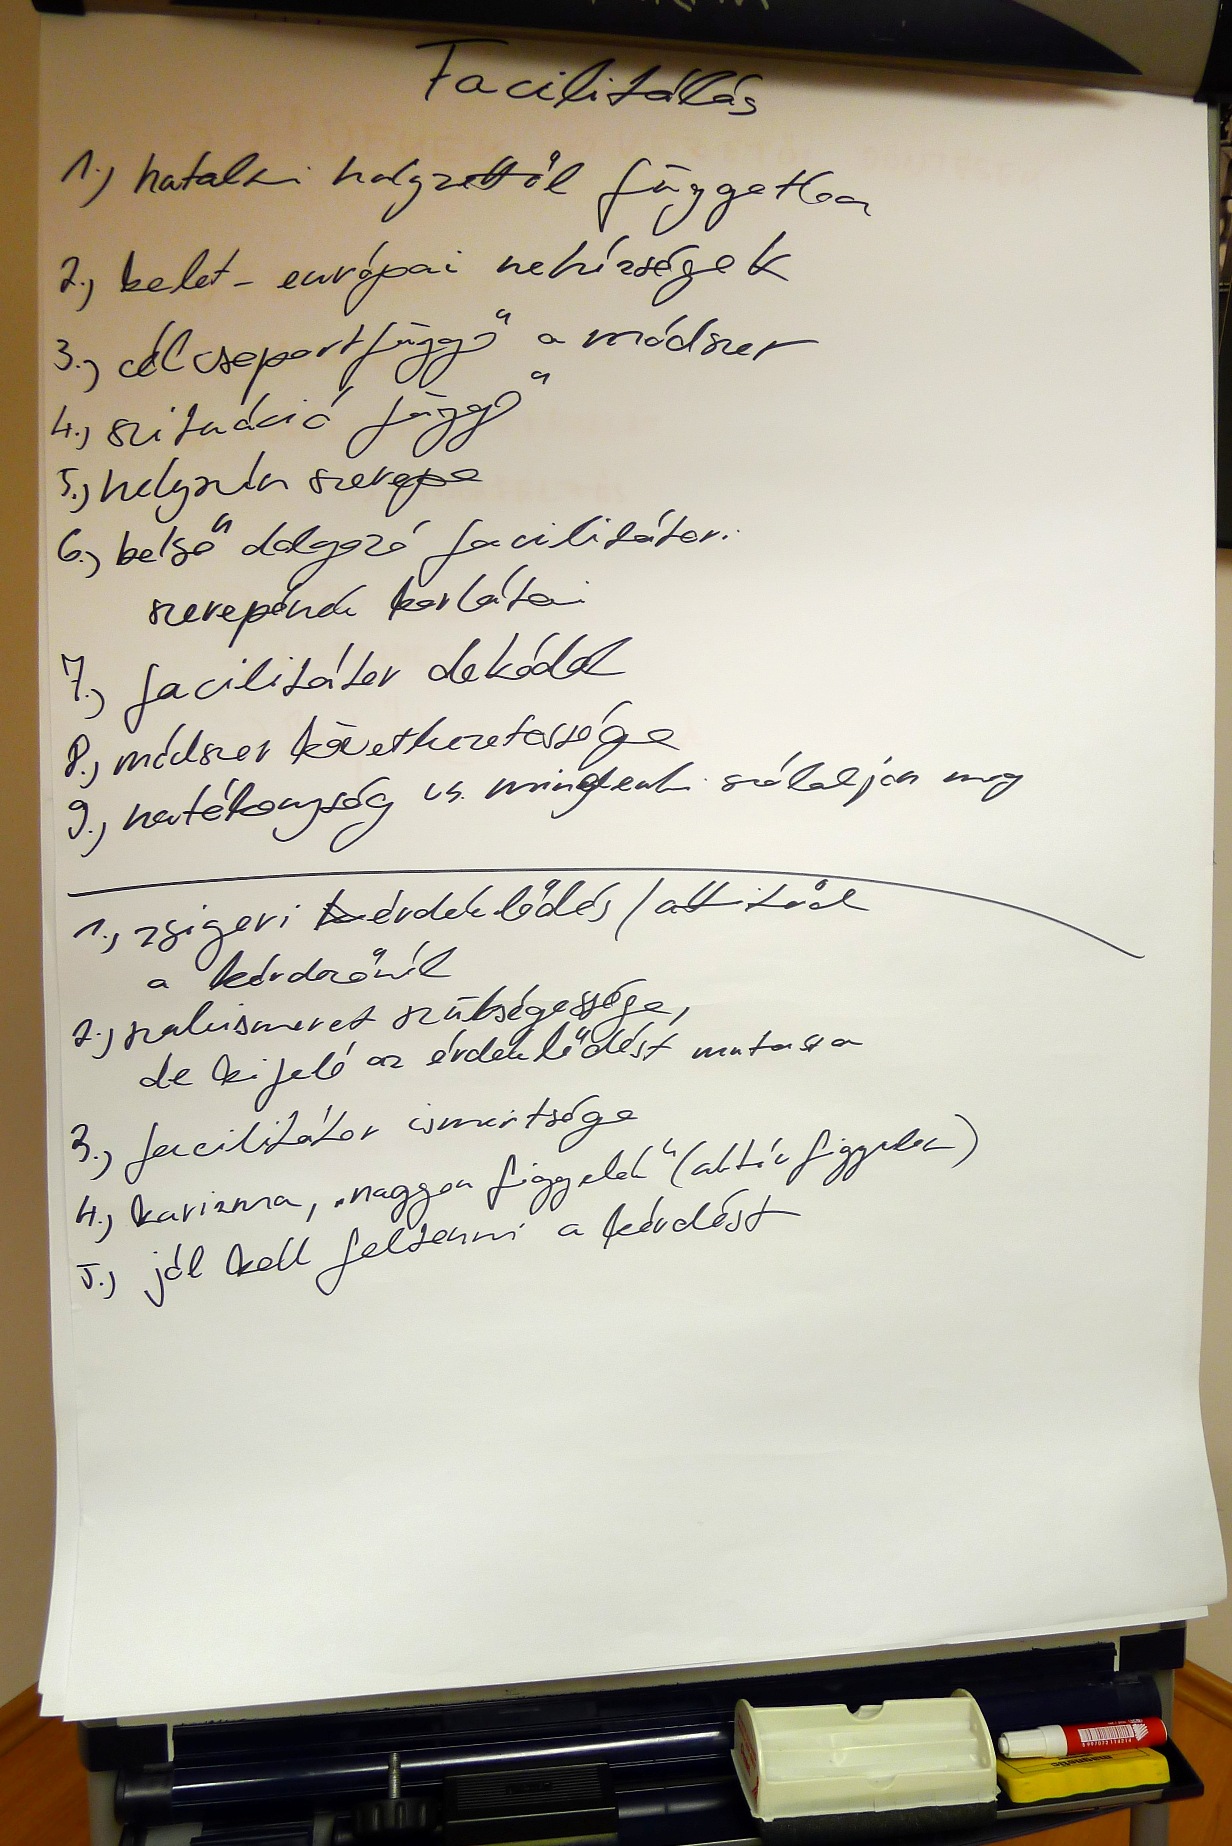 Facilitálás
1.) hatalmi helyzettől független
2.) kelet-európai nehézségek
3.) célcsoportfüggő a módszer
4.) szituáció függő
5.) helyszín szerepe
6.) belső dolgozó facilitátori
szerepének korlátai
7.) facilitátor dekódol
8.) módszer következetessége
9.) hatékonyság vs. mindenki szólaljon meg
1.) zsigeri érdeklődés/attitűd
a kérdezőnél
2.) szakismeret szükségessége,
de kifelé az érdeklődést mutassa
3.) facilitátor ismertsége
4.) karizma, „nagyon figyelek" (aktív figyelem)
5.) jól kell feltenni a kérdést